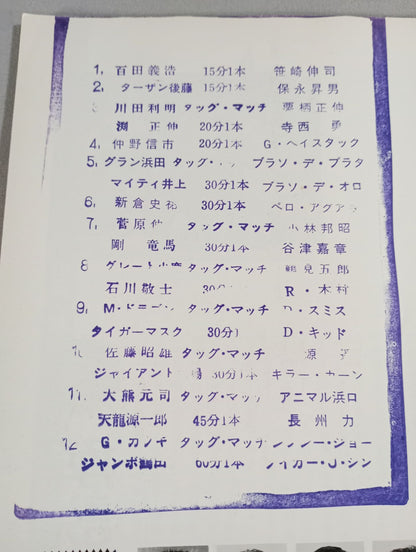 1, 百田義浩 15分1本 笹崎伸司
2, ターザン後藤 15分1本 保永昇男
3 川田利明 タッグ・マッチ 栗栖正伸
渕 正伸 20分1本 寺西 勇
4, 仲野信市 20分1本 G・ヘイスタック
5, グラン浜田 タッグ・ ブラソ・デ・プラタ
マイティ井上 30分1本 ブラソ・デ・オロ
6, 新倉史祐 30分1本 ペロ・アグアヨ
7, 菅原伸 タッグ・マッチ 小林邦昭
剛 竜馬 30分1本 谷津嘉章
8 グレート小鹿 タッグ・マッチ 鶴見五郎
石川敬士 30 R・木村
9, M・ タッグ・マッチ D・スミス
タイガーマスク 30分1 D・キッド
1 佐藤昭雄 タッグ・マッチ
ジャイアント 場 30分1本 キラー・カーン
11, 大熊元司 タッグ・マッ アニマル浜口
天龍源一郎 45分1本 長 州 力
12 G・カブキ タッグ・マッチ ・ジョー
ジャンボ鶴田 60分1本 ・J・シン